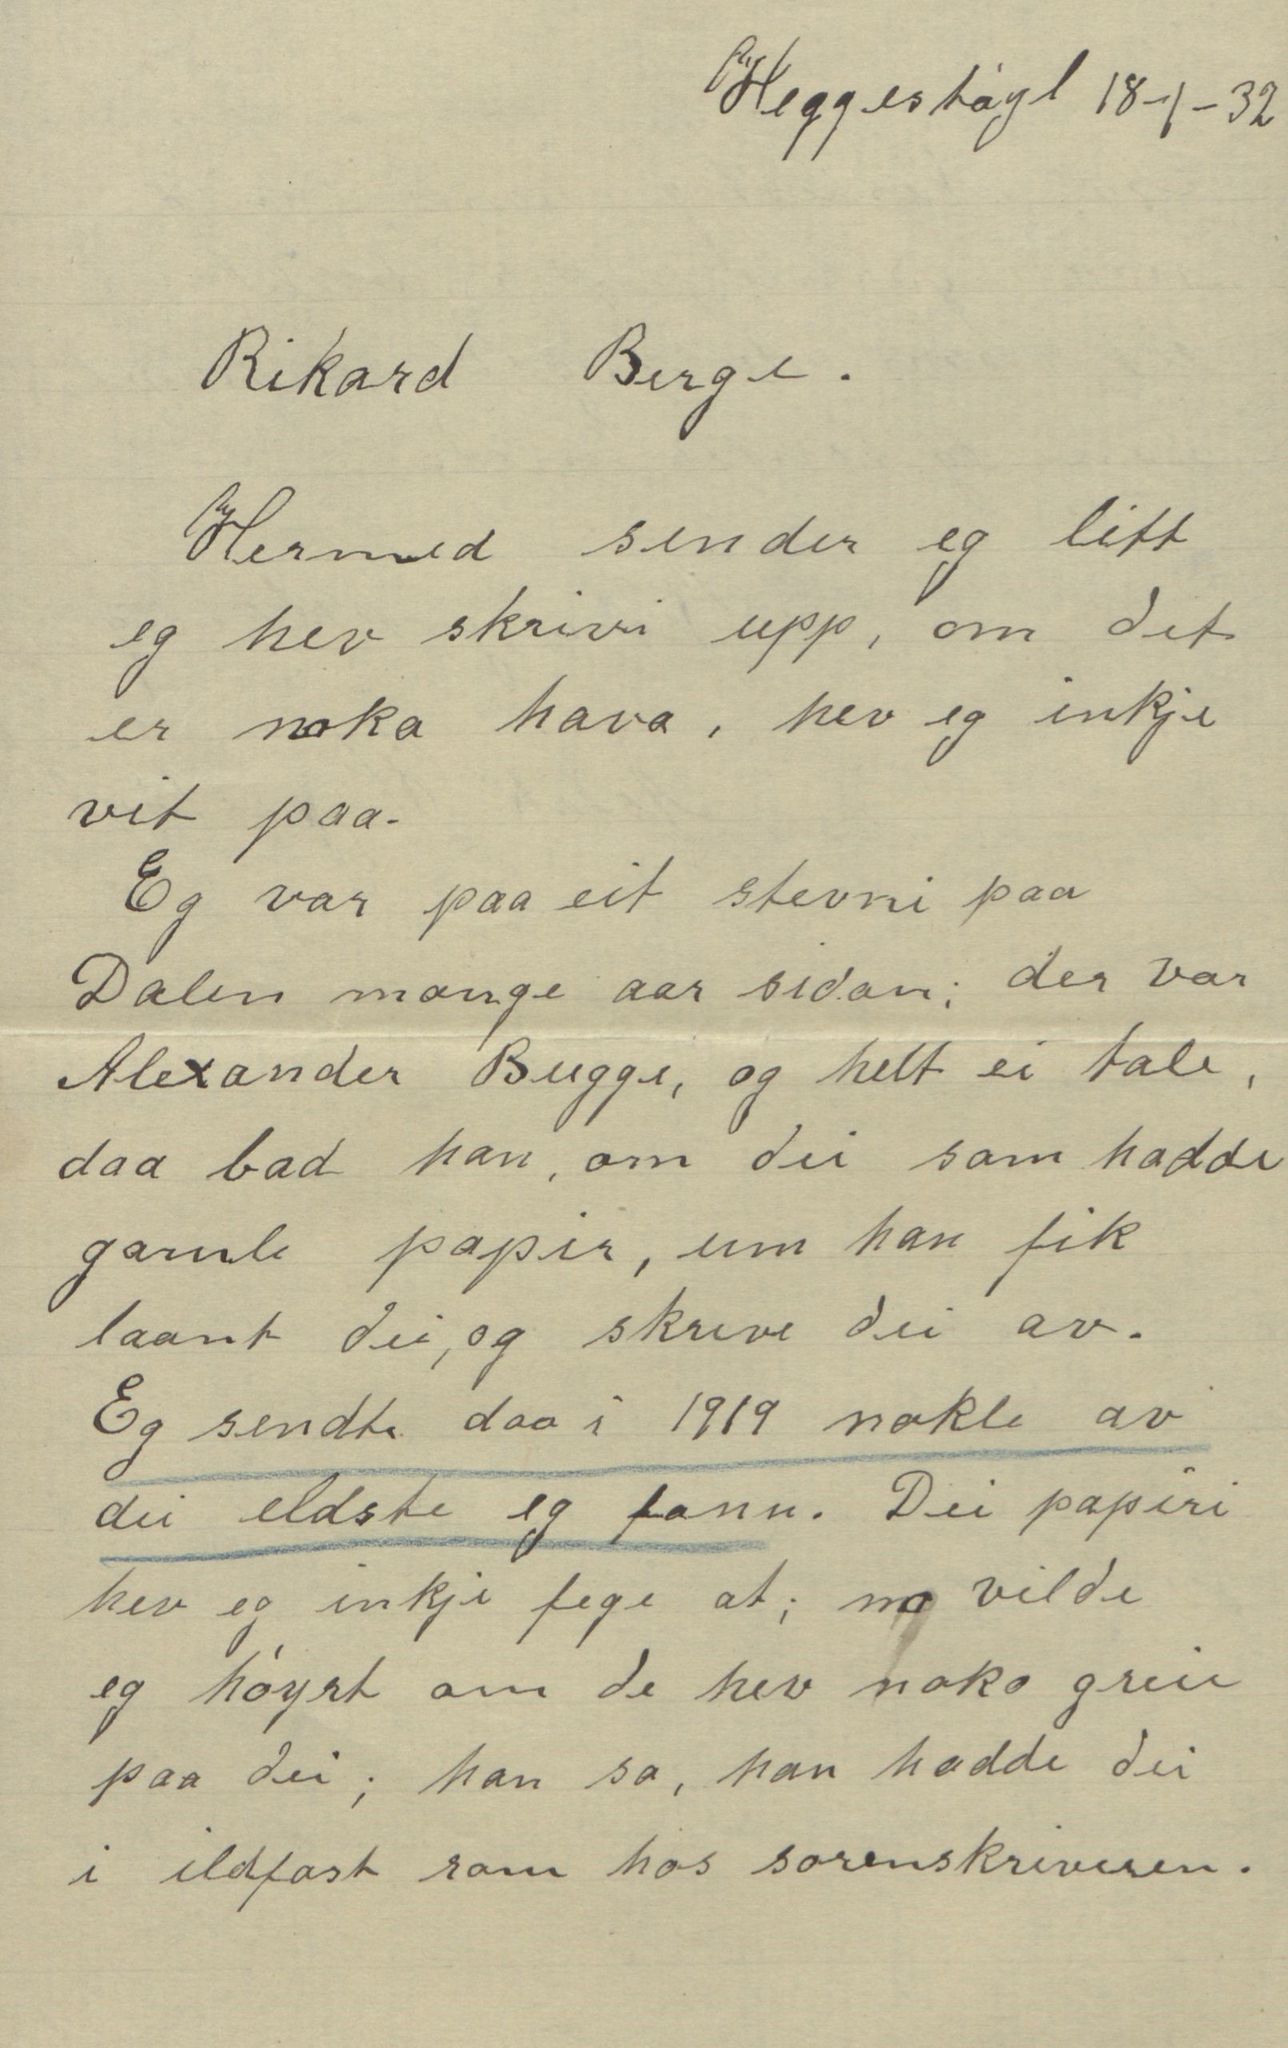 Heggestøyl 18-1-32
Rikard Berge.
Hermed sender eg litt
eg hev skrivi upp, om det
er noka hava, hev eg inkje
vit paa.
Eg var paa eit stevni paa
Dalen mange aar sidan; der var
Alexander Bugge, og helt ei tale,
daa bad han, om dei som hadde
gamle papir, um han fik
laant dei, og skreve dei av.
Eg sendte daa i 1919 nokle av
dei eldste eg fann. Dei papiri
hev eg inkje fege at; no vilde
eg høyrt om de hev noko greie
paa dei; han sa, han hadde dei
i ildfast rom hos sorenskriveren.